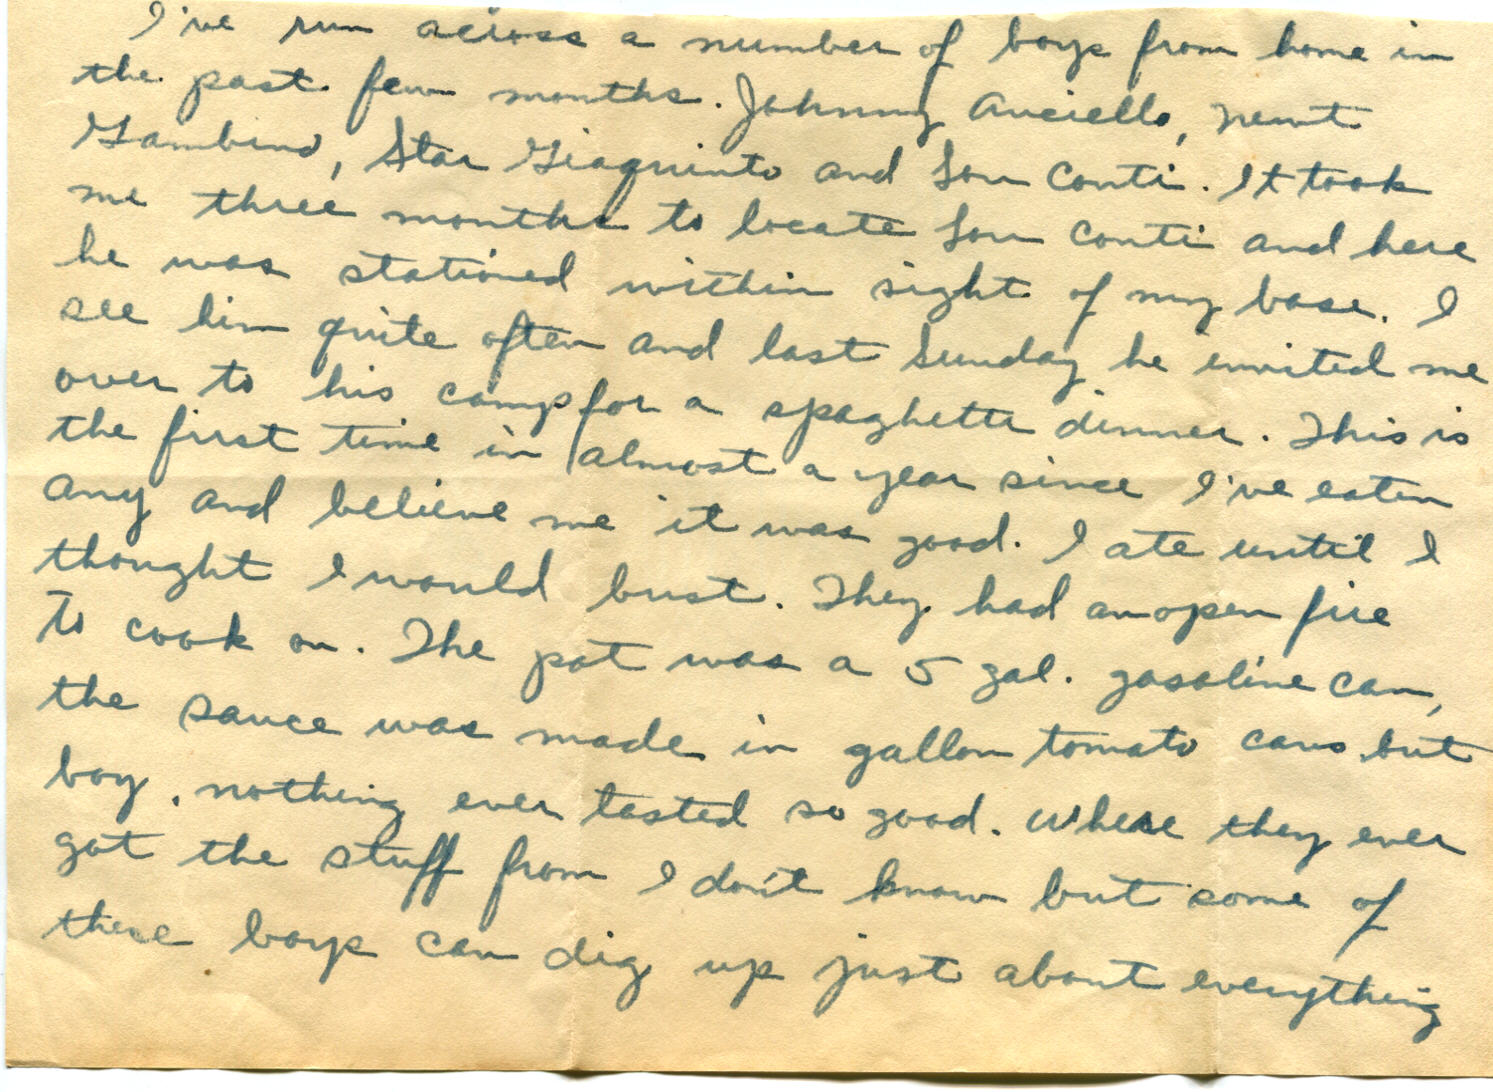 I've run across a number of boys from home in
the past few months. Johnny Auciello, Newt
Gambino, Star Giaquinto and Lou Conti. It took
me three months to locate Lou Conti and here
he was stationed within sight of my base. I
see him quite often and last Sunday he invited me
over to his camp for a spaghetti dinner. This is
the first time in almost a year since I've eaten
any and believe me it was good. I ate until I
thought I would bust. They had an open fire
to cook on. The pot was a 5 gal. gasoline can,
the sauce was made in gallon tomato cans but
boy, nothing ever tasted so good. Where they ever
got the stuff from I don't know but some of
these boys can dig up just about everything